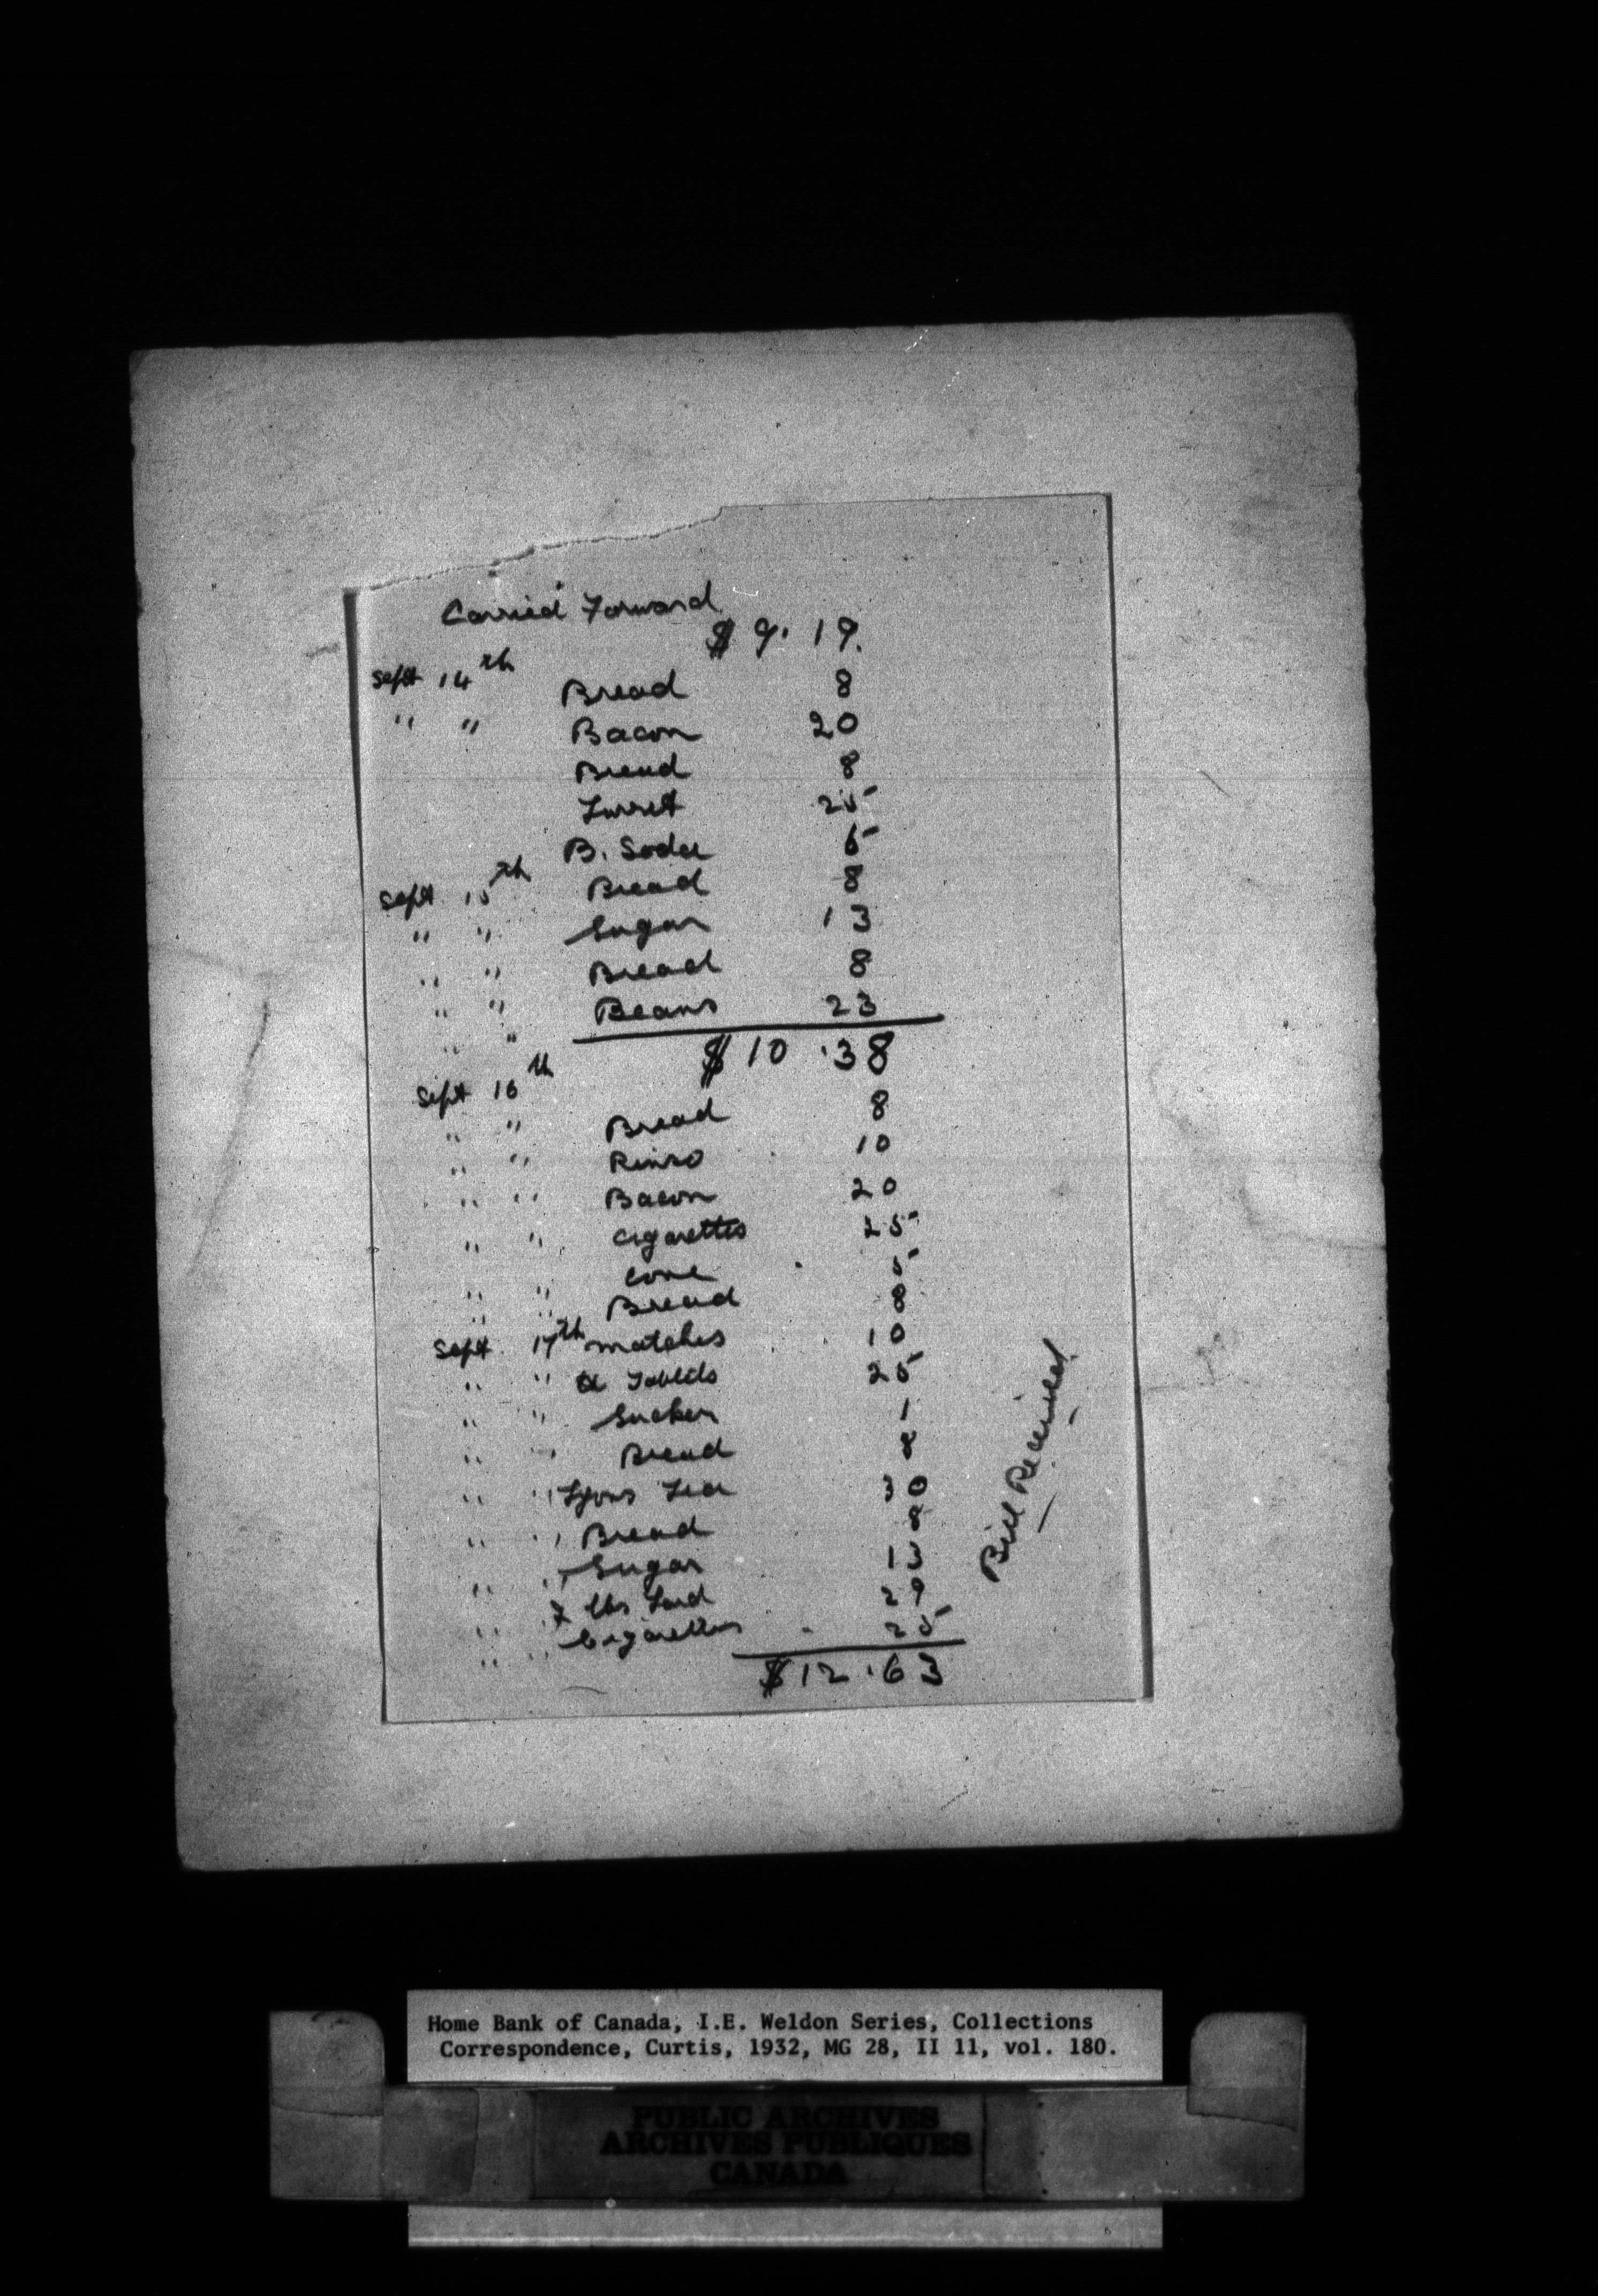 Carried Forward
$ 9. 19.
Sept 14th
Bread 8
" " Bacon 20
Bread 8
Turret 25
B. Soda 6
Sept 15th Bread 8
" " Sugar 13
" " Bread 8
" " Beans 23
" "
$ 10 .38
Sept 16th
" " Bread 8
" " Rinso 10
" " Bacon 20
" " Cigarettes 25
Cone 5
" " Bread 8
Sept. 17th matches 10
" " Tablets 25
" " Sucker 1
" " Bread 8
" " Lyons Tea 30
" " Bread 8
" " Sugar 13
" " lbs Lard 29
" " Cigarettes 25
$ 12 .63
Bill Received
Home Bank of Canada, I.E. Weldon Series, Collections
Correspondence, Curtis, 1932, MG 28, II 11, vol. 180.
PUBLIC ARCHIVES
ARCHIVES PUBLIQUES
CANADA